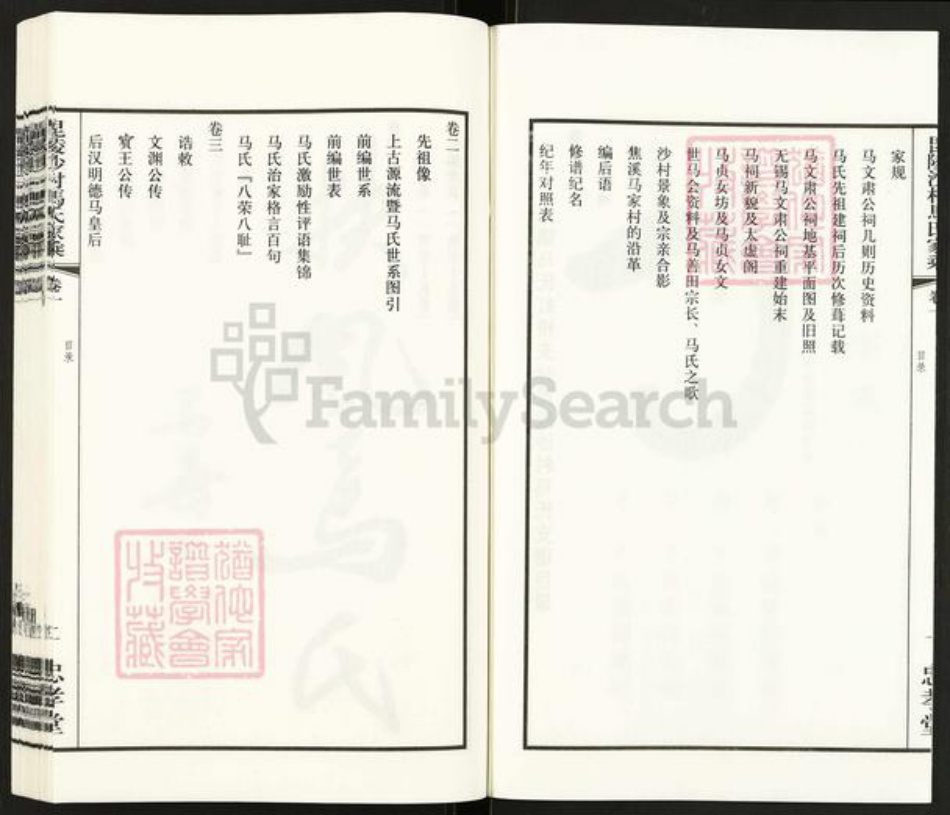 家规
马文肃公祠几则历史资料
马氏先祖建祠后历次修葺记载
马文肃公祠地基平面图及旧照
无锡马文肃公祠重建始末
马祠新貌及太虚阁
马贞女坊及马贞女文
世马会资料及马善田宗长、马氏之歌
沙村景象及宗亲合影
焦溪马家村的沿革
编后语
修谱纪名
纪年对照表
目录
一
忠孝堂
卷二
先祖像
上古源流暨马氏世系图引
前编世系
前编世表
马氏激励性评语集锦
马氏治家格言百句
马氏『八荣八耻』
卷三
诰敕
文渊公传
賨王公传
后汉明德马皇后
卷一
目录
二
忠孝堂
FamilySearch
猶他家
譜學會
收藏